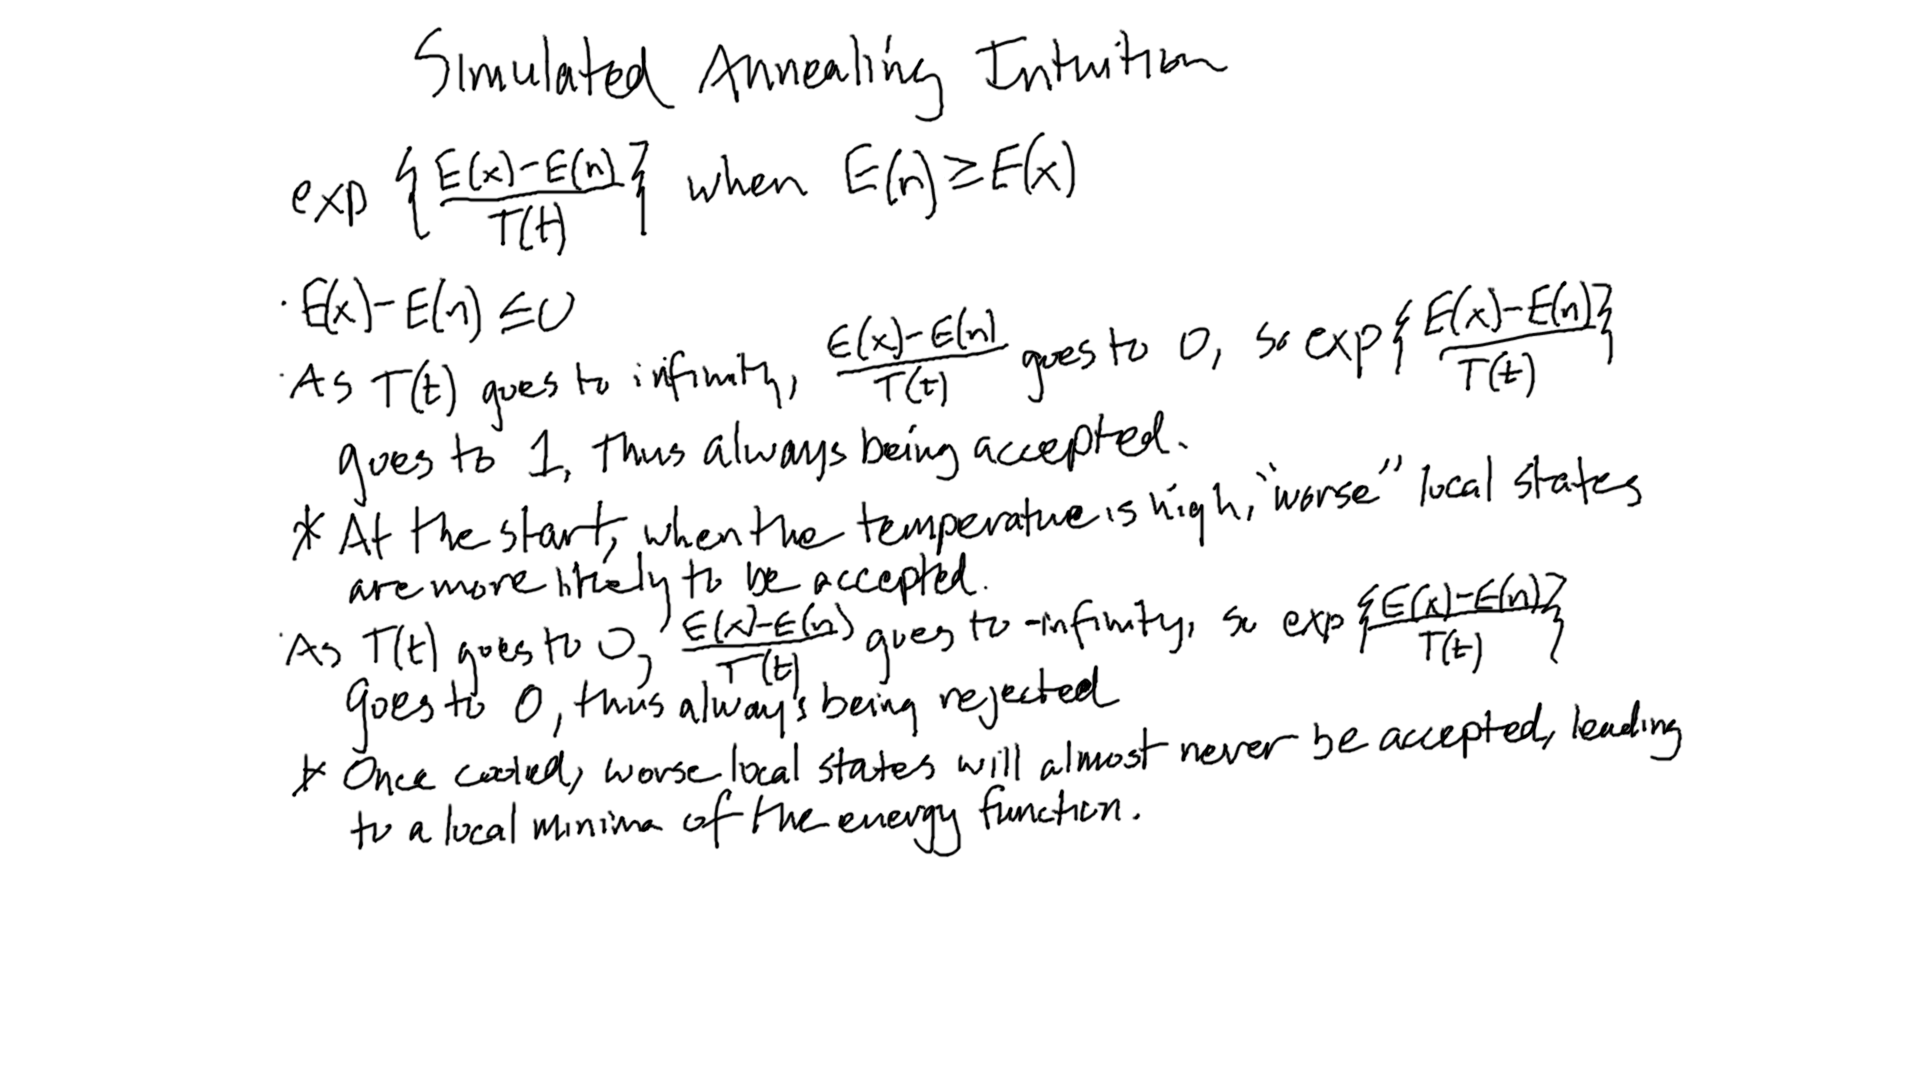 Simulated Annealing Intuition
exp {E(x)-E(n)/T(t)} when E(n)≥E(x)
· E(x)-E(n) ≤0
· As T(t) goes to infinity, E(x)-E(n)/T(t) goes to 0, so exp{E(x)-E(n)/T(t)}
goes to 1, thus always being accepted.
* At the start, when the temperature is high, "worse" local states
are more likely to be accepted.
· As T(t) goes to 0, E(x)-E(n)/T(t) goes to -infinity, so exp {E(x)-E(n)/T(t)}
goes to 0, thus always being rejected
* Once cooled, worse local states will almost never be accepted, leading
to a local minima of the energy function.